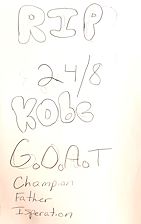 RIP
24/8
Kobe
G.O.A.T
Champion
Father
Isperation